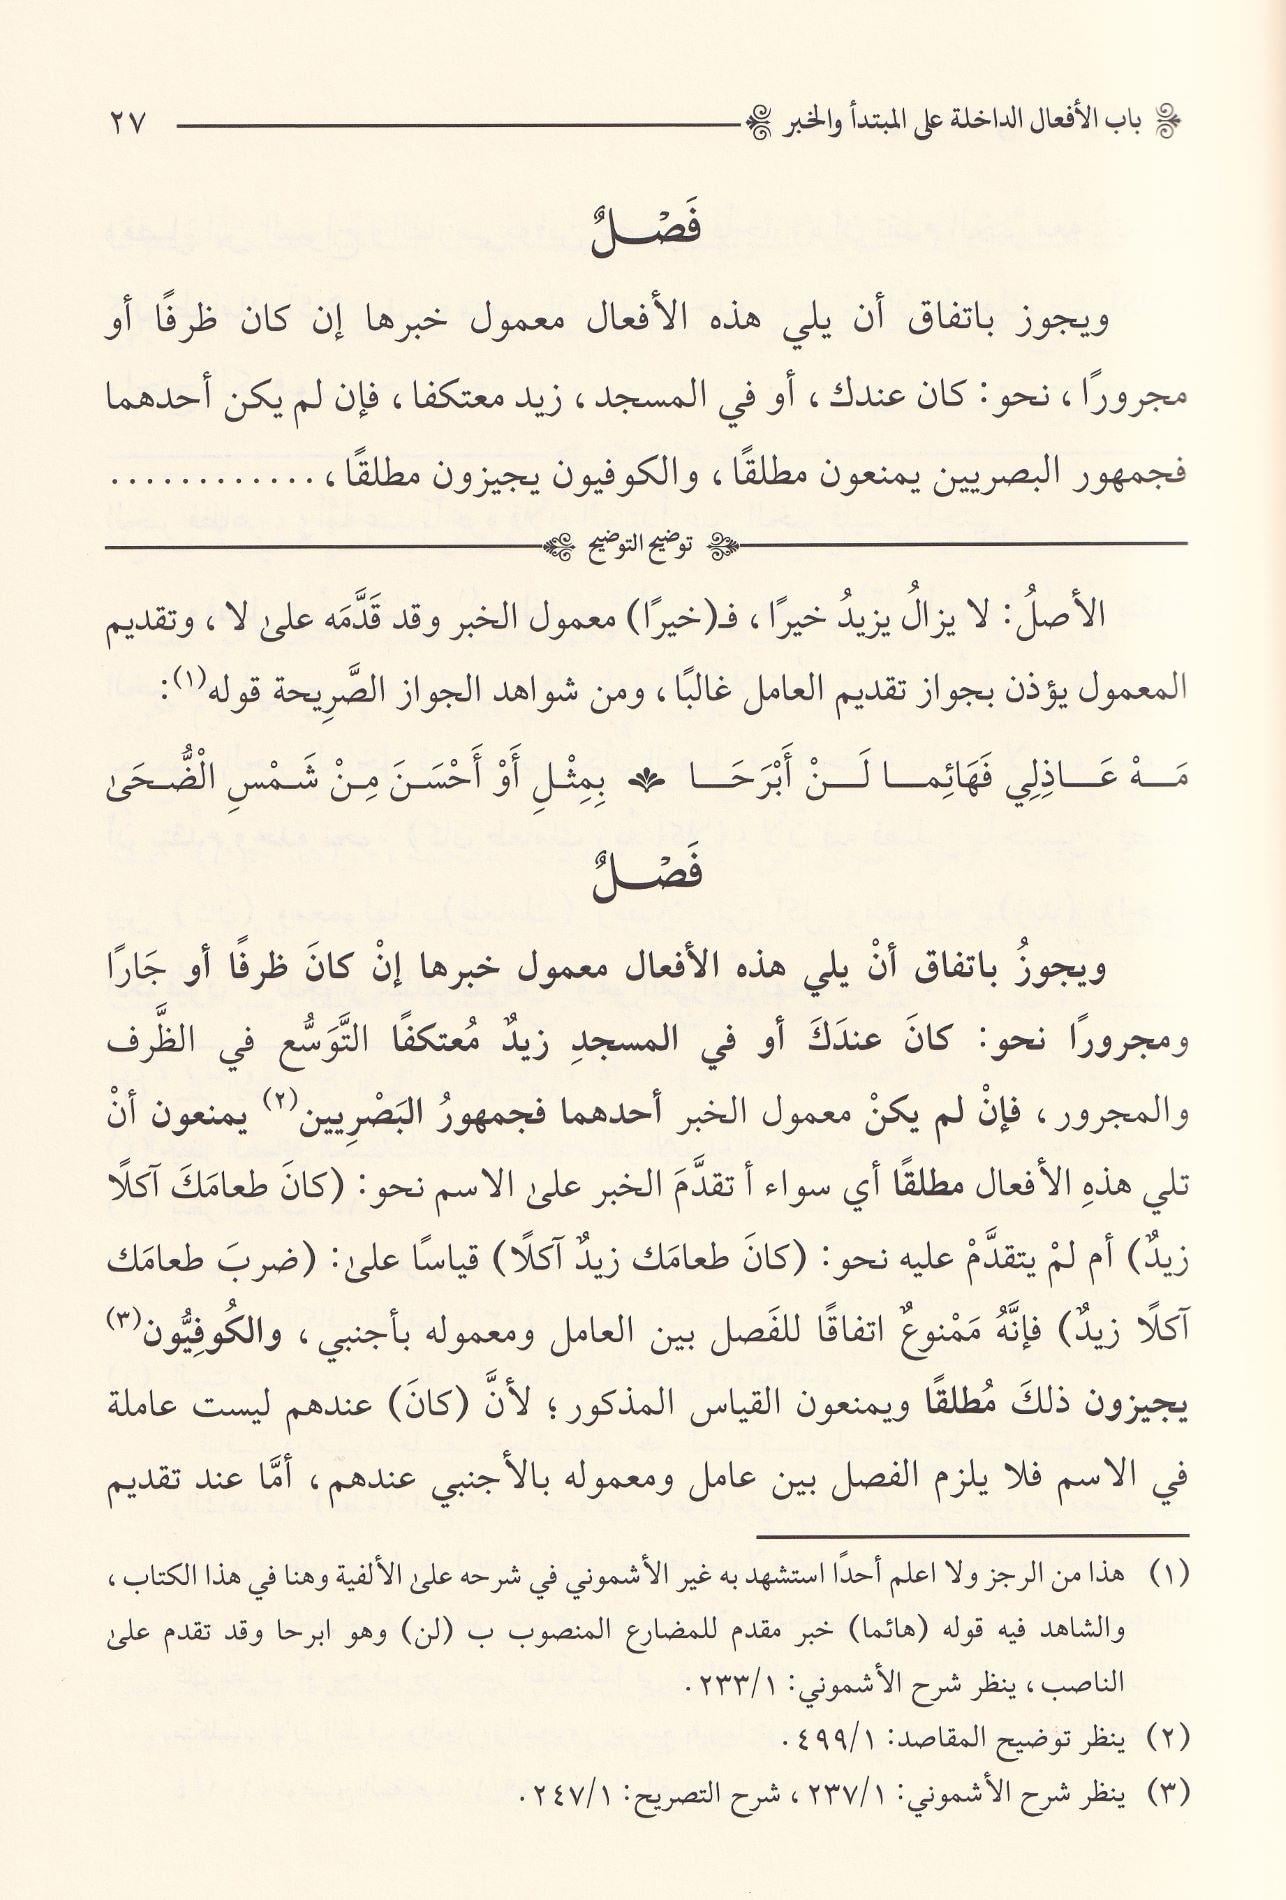 باب الأفعال الداخلة على المبتدأ والخبر ٢٧
فَصْلٌ
ويجوز باتفاق أن يلي هذه الأفعال معمول خبرها إن كان ظرفًا أو
مجرورًا، نحو: كان عندك، أو في المسجد، زيد معتكفا، فإن لم يكن أحدهما
فجمهور البصريين يمنعون مطلقًا، والكوفيون يجيزون مطلقًا، ............
توضيح التوضيح
الأصلُ: لا يزالُ يزيدُ خيرًا، فـ(خيرًا) معمول الخبر وقد قَدَّمَه على لا، وتقديم
المعمول يؤذن بجواز تقديم العامل غالبًا، ومن شواهد الجواز الصَّرِيحة قوله(١):
مَـهْ عَـاذِلِي فَهَائِمـا لَـنْ أَبْرَحَـا بِمِثْـلِ أَوْ أَحْسَـنَ مِـنْ شَـمْسِ الْضُّـحَى
فَصْلٌ
ويجوزُ باتفاق أنْ يلي هذه الأفعال معمول خبرها إنْ كانَ ظرفًا أو جَارًا
ومجرورًا نحو: كانَ عندَكَ أو في المسجدِ زيدٌ مُعتكفًا التَّوَسُّع في الظَّرف
والمجرور، فإنْ لم يكنْ معمول الخبر أحدهما فجمهورُ البَصْرِيين(٢) يمنعون أنْ
تلي هذهِ الأفعال مطلقًا أي سواء أ تقدَّمَ الخبر على الاسم نحو: (كانَ طعامَكَ آكلًا
زيدٌ) أم لمْ يتقدَّمْ عليه نحو: (كانَ طعامَك زيدٌ آكلًا) قياسًا على: (ضربَ طعامَك
آكلًا زيدٌ) فإنَّهُ مَمْنوعٌ اتفاقًا للفَصل بين العامل ومعموله بأجنبي، والكُوفِيُّون(٣)
يجيزون ذلكَ مُطلقًا ويمنعون القياس المذكور؛ لأنَّ (كانَ) عندهم ليست عاملة
في الاسم فلا يلزم الفصل بين عامل ومعموله بالأجنبي عندهم، أمَّا عند تقديم
(١) هذا من الرجز ولا اعلم أحدًا استشهد به غير الأشموني في شرحه على الألفية وهنا في هذا الكتاب،
والشاهد فيه قوله (هائما) خبر مقدم للمضارع المنصوب ب (لن) وهو ابرحا وقد تقدم على
الناصب، ينظر شرح الأشموني: ٢٣٣/١.
(٢) ينظر توضيح المقاصد: ٤٩٩/١.
(٣) ينظر شرح الأشموني: ٢٣٧/١، شرح التصريح: ٢٤٧/١.